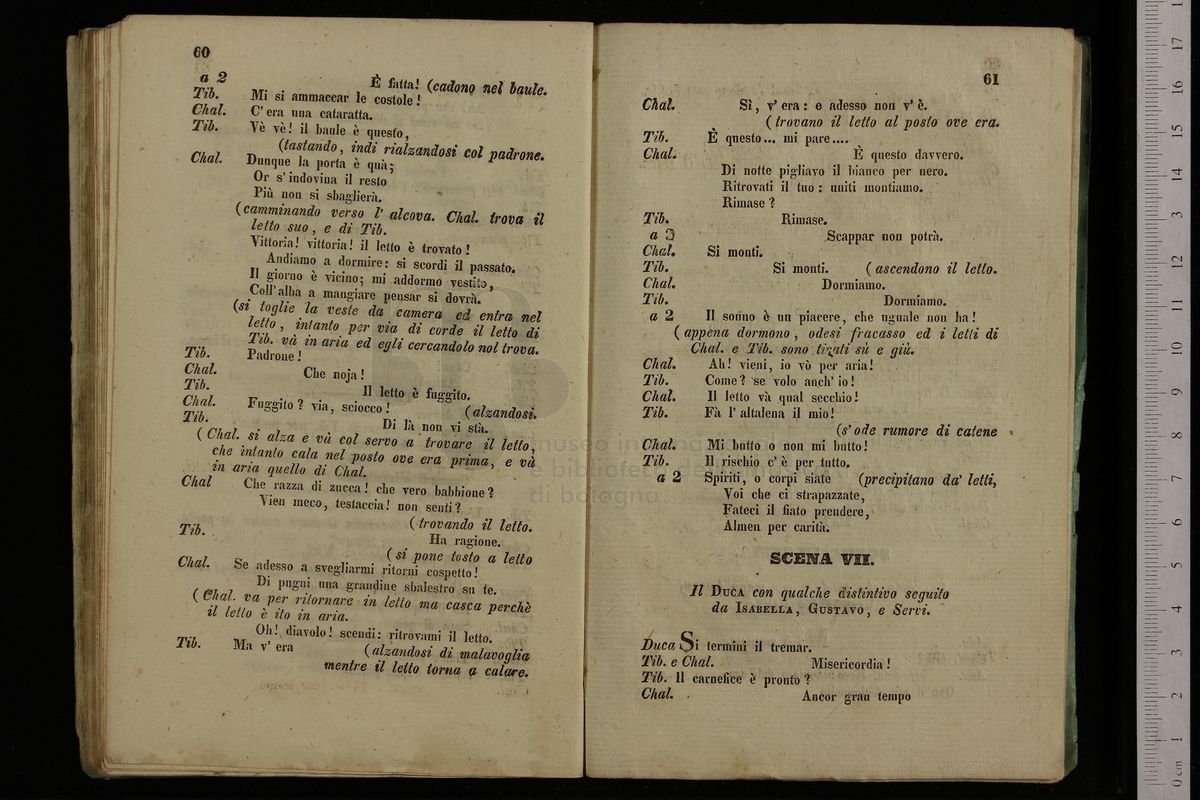 60
a 2 È fatta! (cadono nel baule.
Tib. Mi si ammaccar le costole!
Chal. C' era una cataratta.
Tib. Vè vè! il baule è questo,
(tastando, indi rialzandosi col padrone.
Chal. Dunque la porta è quà;
Or s' indovina il resto
Più non si sbaglierà.
(camminando verso l' alcova. Chal. trova il
letto suo, e di Tib.
Vittoria! vittoria! il letto è trovato!
Andiamo a dormire: si scordi il passato.
Il giorno è vicino; mi addormo vestito,
Coll' alba a mangiare pensar si dovrà.
(si toglie la veste da camera ed entra nel
letto, intanto per via di corde il letto di
Tib. và in aria ed egli cercandolo nol trova.
Tib. Padrone!
Chal. Che noja!
Tib. Il letto è fuggito.
Chal. Fuggito? via, sciocco! (alzandosi.
Tib. Di là non vi stà.
(Chal. si alza e và col servo a trovare il letto,
che intanto cala nel posto ove era prima, e và
in aria quello di Chal.
Chal Che razza di zucca! che vero babbione?
Vien meco, testaccia! non senti?
(trovando il letto.
Tib. Ha ragione.
(si pone tosto a letto
Chal. Se adesso a svegliarmi ritorni cospetto!
Di pugni una grandine sbalestro su te.
(Chal. va per ritornare in letto ma casca perchè
il letto è ito in aria.
Oh! diavolo! scendi: ritrovami il letto.
Tib. Ma v' era (alzandosi di malavoglia
mentre il letto torna a calare.
61
Chal. Sì, v' era: e adesso non v' è.
(trovano il letto al posto ove era.
Tib. È questo... mi pare....
Chal. È questo davvero.
Di notte pigliavo il bianco per nero.
Ritrovati il tuo: uniti montiamo.
Rimase?
Tib. Rimase.
a 2 Scappar non potrà.
Chal. Si monti.
Tib. Si monti. (ascendono il letto.
Chal. Dormiamo.
Tib. Dormiamo.
a 2 Il sonno è un piacere, che uguale non ha!
(appena dormono, odesi fracasso ed i letti di
Chal. e Tib. sono tirati sù e giù.
Chal. Ah! vieni, io vò per aria!
Tib. Come? se volo anch' io!
Chal. Il letto và qual secchio!
Tib. Fà l' altalena il mio!
(s' ode rumore di catene
Chal. Mi butto o non mi butto!
Tib. Il rischio c' è per tutto.
a 2 Spiriti, o corpi siate (precipitano da' letti,
Voi che ci strapazzate,
Fateci il fiato prendere,
Almen per carità.
SCENA VII.
Il DUCA con qualche distintivo seguito
da ISABELLA, GUSTAVO, e Servi.
Duca Si termini il tremar.
Tib. e Chal. Misericordia!
Tib. Il carnefice è pronto?
Chal. Ancor gran tempo